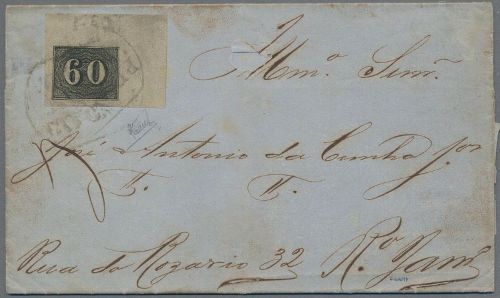 60
Illmo. Senr.
José Antonio da Cunha Jor.
F. F.
Rua do Rozario 32 Ro. Janro